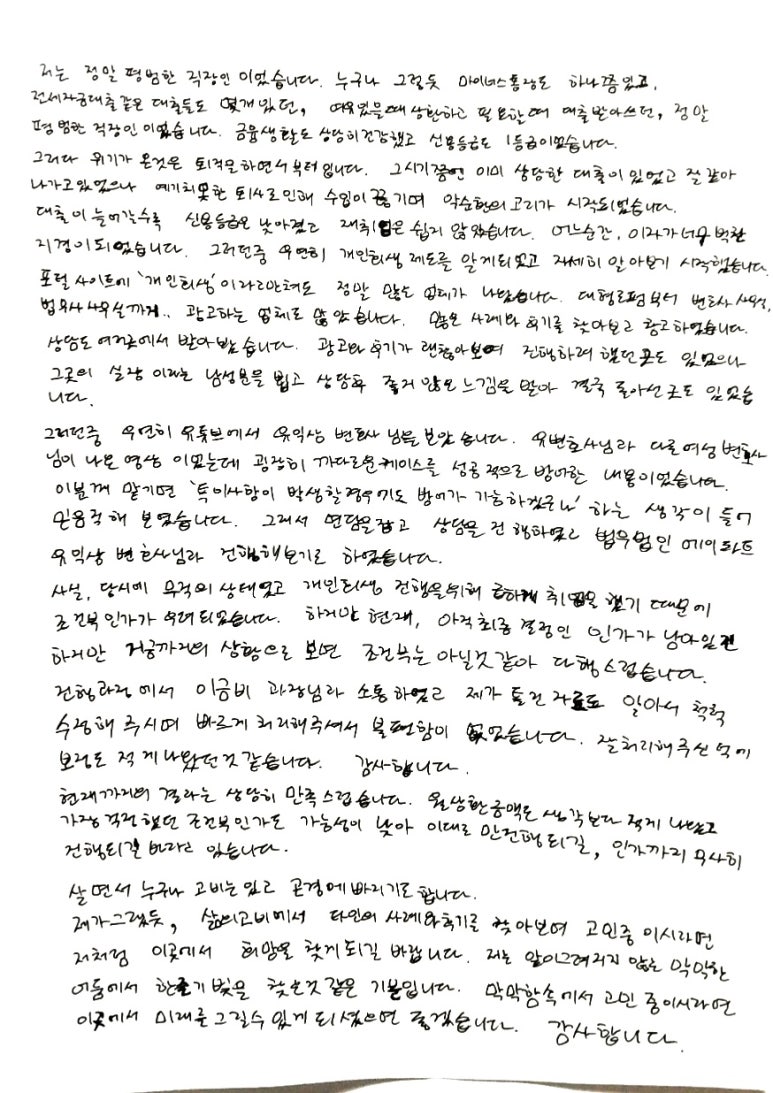 저는 정말 평범한 직장인 이었습니다. 누구나 그렇듯 마이너스통장도 하나쯤 있고,
전세자금대출같은 대출들도 몇개 있던, 여유있을때 상환하고 필요할때 대출받아쓰던, 정말
평범한 직장인 이었습니다. 금융생활도 상당히 건강했고 신용등급도 1등급이었습니다.
그러다 위기가 온것은 퇴직을 하면서부터 입니다. 그시기쯤엔 이미 상당한 대출이 있었고 잘 갚아
나가고있었으나 예기치못한 퇴사로인해 수입이 끊기며 악순환의 고리가 시작되었습니다.
대출이 늘어갈수록 신용등급은 낮아졌고 재취업은 쉽지 않았습니다. 어느순간, 이자가 너무 벅찬
지경이 되었습니다. 그러던중 우연히 개인회생 제도를 알게되었고 자세히 알아보기 시작했습니다.
포털사이트에 '개인회생' 이라고만쳐도 정말 많은 업체가 나왔습니다. 대형로펌부터 변호사 사무실,
법무사 사무실까지.. 광고하는 업체도 많았습니다. 많은 사례와 후기를 찾아보고 참고하였습니다.
상담도 여러곳에서 받아봤습니다. 광고와 후기가 괜찮아보여 진행하려 했던곳도 있었으나
그곳의 실장 이라는 남성분을 뵙고 상담후 좋지 않은 느낌을 받아 결국 돌아선 곳도 있었습
니다.
그러던중 우연히 유튜브에서 유익상 변호사 님을 보았습니다. 유변호사님과 다른 여성 변호사
님이 나온 영상 이었는데 굉장히 까다로운케이스를 성공적으로 방어한 내용이었습니다.
이분께 맡기면 '특이사항이 발생할경우에도 방어가 가능하겠구나' 하는 생각이 들어
믿음직해 보였습니다. 그래서 면담을잡고 상담을 진행하였고 법무법인 에이파트
유익상 변호사님과 진행해보기로 하였습니다.
사실, 당시에 무직의 상태였고 개인회생 진행을위해 급하게 취업을 했기 때문에
조건부인가가 우려되었습니다. 하지만 현재, 아직 최종 결정인 인가가 남아있긴
하지만 지금까지의 상황으로 보면 조건부는 아닐것 같아 다행스럽습니다.
진행과정에서 이금비 과장님과 소통하였고 제가 드린 자료도 알아서 척척
수정해 주시며 빠르게 처리해주셔서 불편함이 없었습니다. 잘처리해주신 덕에
보정도 적게나왔던것 같습니다. 감사합니다.
현재까지의 결과는 상당히 만족스럽습니다. 월상환금액도 생각보다 적게 나왔고
가장걱정했던 조건부인가도 가능성이 낮아 이대로만 진행되길, 인가까지 무사히
진행되길 바라고 있습니다.
살면서 누구나 고비는 있고 곤경에 빠지기도 합니다.
제가그렇듯, 삶의고비에서 타인의 사례와후기를 찾아보며 고민중 이시라면
저처럼 이곳에서 희망을 찾게되길 바랍니다. 저는 앞이그려지지 않는 막막한
어둠에서 한줄기 빛을 찾은것 같은 기분입니다. 막막함속에서 고민 중이시라면
이곳에서 미래를 그릴수 있게 되셨으면 좋겠습니다. 감사합니다.